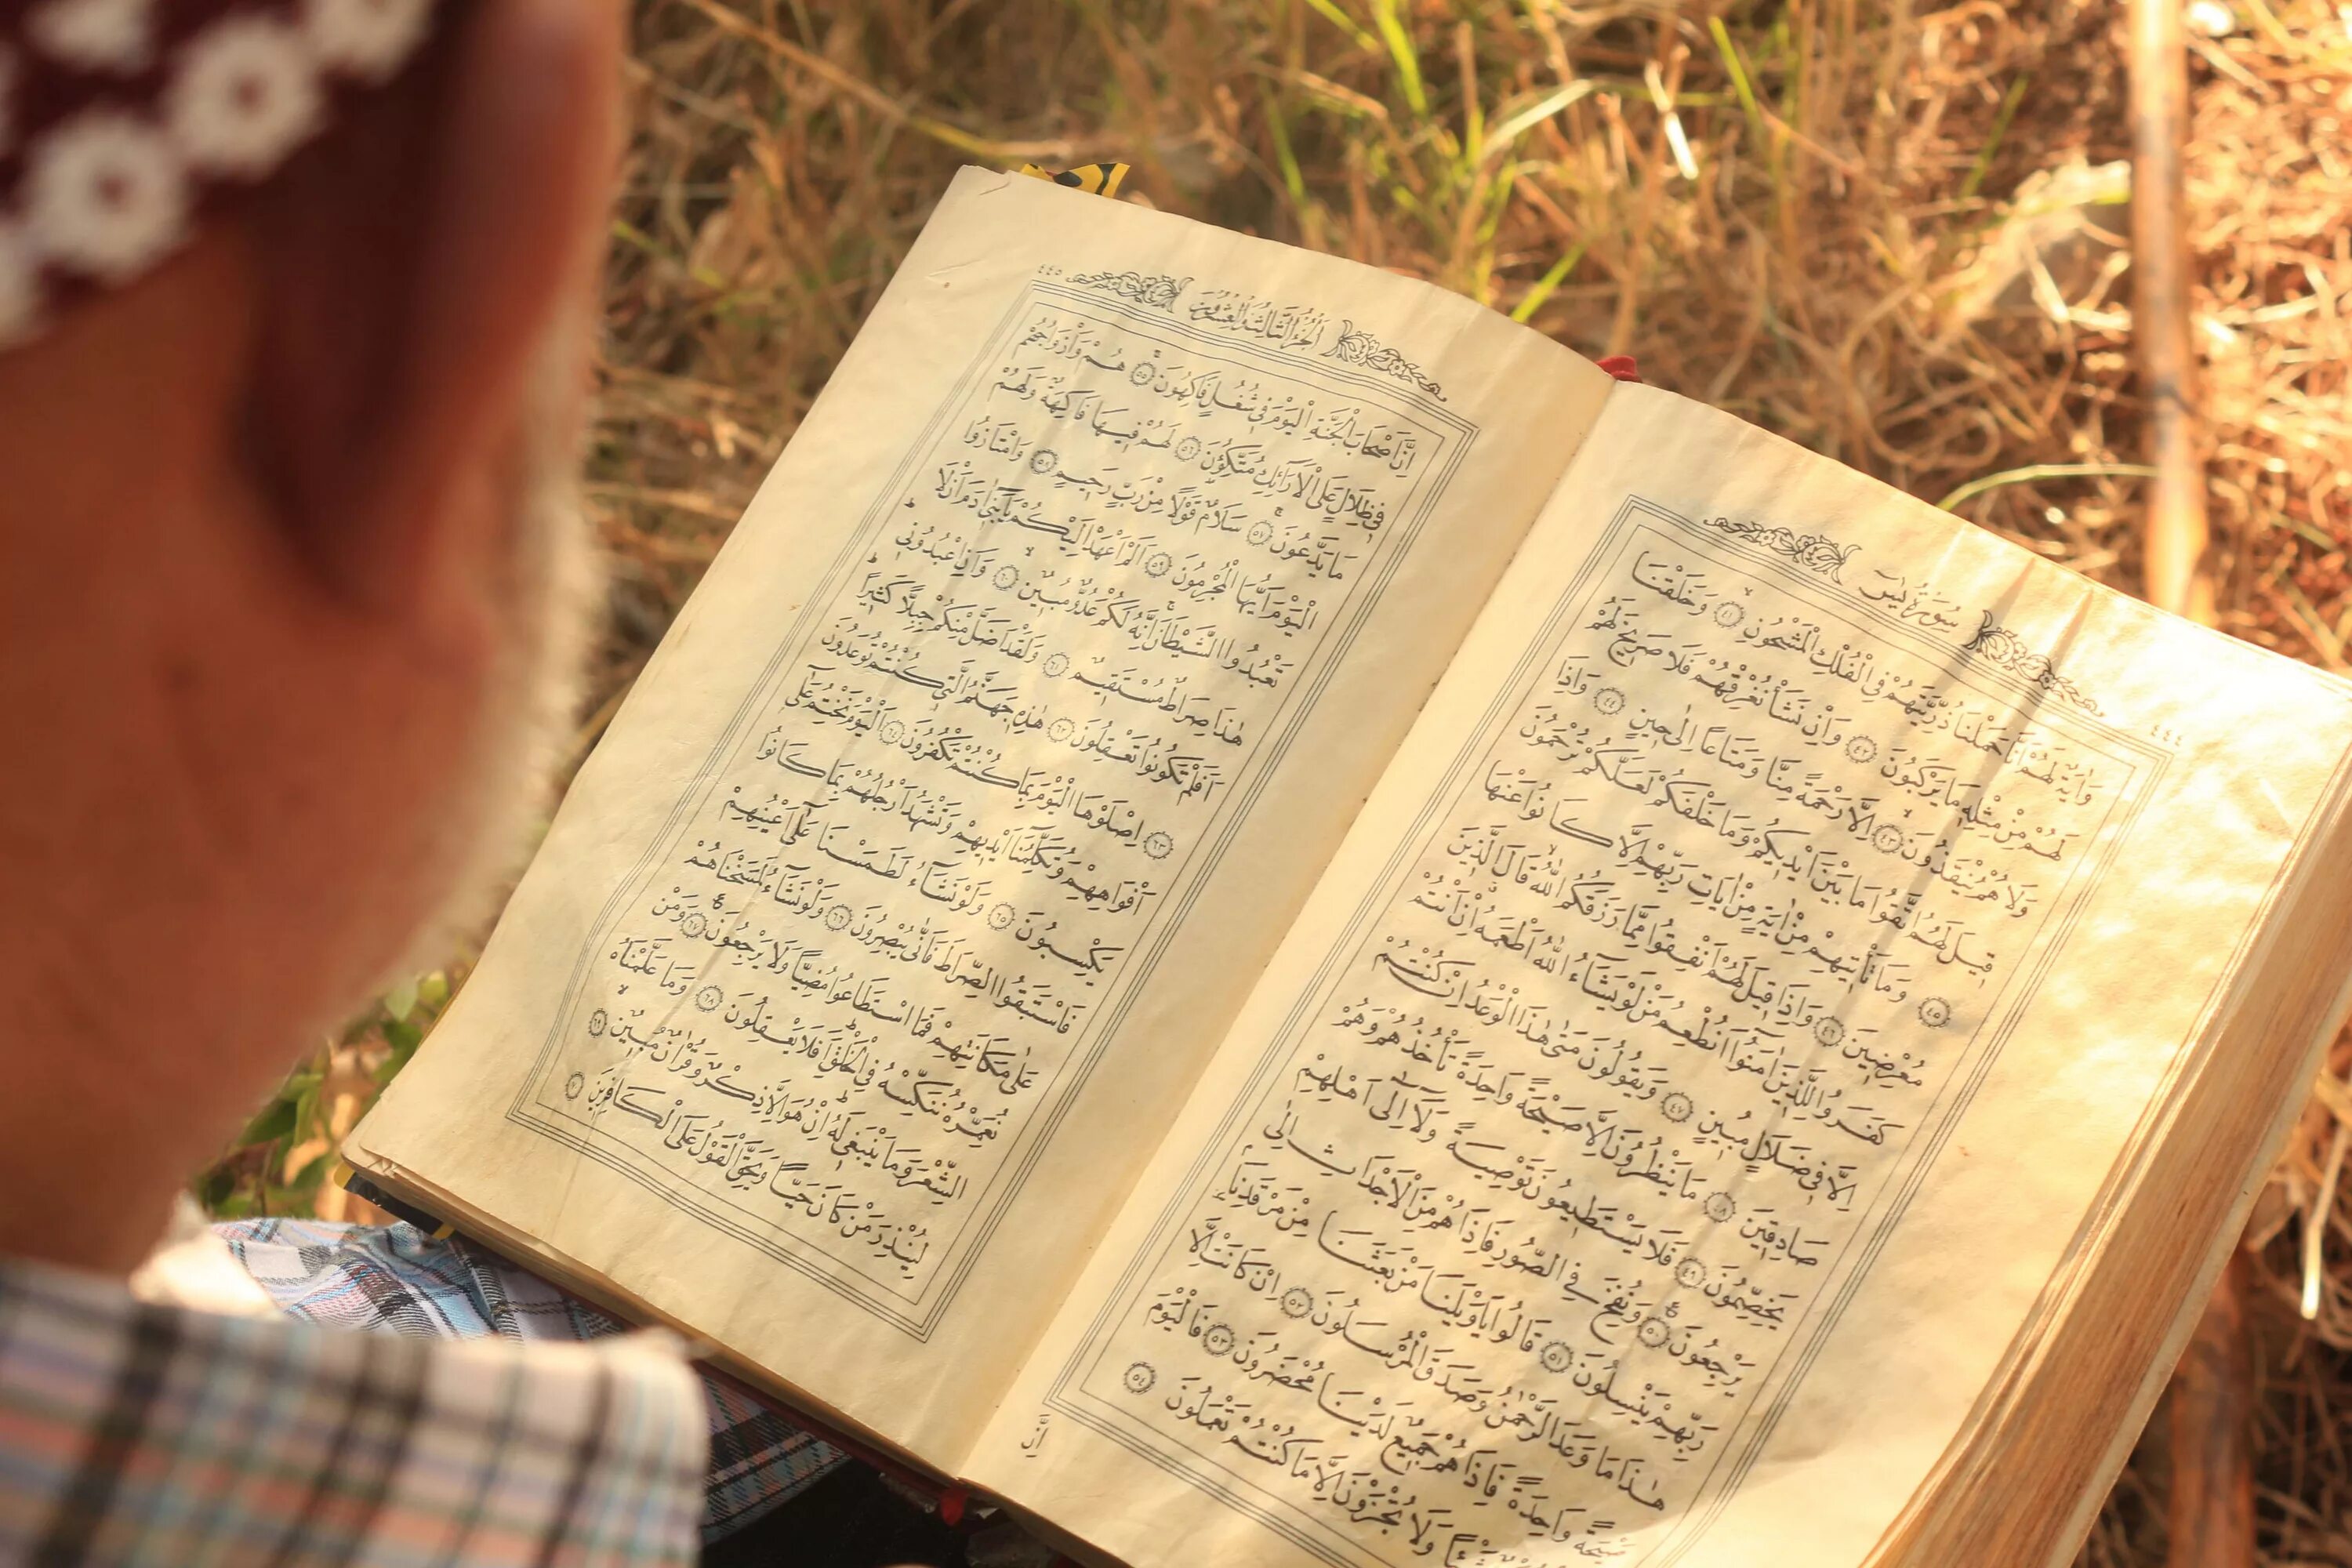 سُورَةُ يٰسٓ ٤٤٤
وَاٰيَةٌ لَهُمْ اَنَّا حَمَلْنَا ذُرِّيَّتَهُمْ فِي الْفُلْكِ الْمَشْحُونِ ٤١ وَخَلَقْنَا
لَهُمْ مِنْ مِثْلِهٖ مَا يَرْكَبُونَ ٤٢ وَاِنْ نَشَأْ نُغْرِقْهُمْ فَلَا صَرِيخَ لَهُمْ
وَلَا هُمْ يُنْقَذُونَ ٤٣ اِلَّا رَحْمَةً مِنَّا وَمَتَاعًا اِلٰى حِينٍ ٤٤ وَاِذَا
قِيلَ لَهُمُ اتَّقُوا مَا بَيْنَ اَيْدِيكُمْ وَمَا خَلْفَكُمْ لَعَلَّكُمْ تُرْحَمُونَ
٤٥ وَمَا تَأْتِيهِمْ مِنْ اٰيَةٍ مِنْ اٰيَاتِ رَبِّهِمْ اِلَّا كَانُوا عَنْهَا
مُعْرِضِينَ ٤٦ وَاِذَا قِيلَ لَهُمْ اَنْفِقُوا مِمَّا رَزَقَكُمُ اللّٰهُ قَالَ الَّذِينَ
كَفَرُوا لِلَّذِينَ اٰمَنُوا اَنُطْعِمُ مَنْ لَوْ يَشَآءُ اللّٰهُ اَطْعَمَهُ اِنْ اَنْتُمْ
اِلَّا فِي ضَلَالٍ مُبِينٍ ٤٧ وَيَقُولُونَ مَتٰى هٰذَا الْوَعْدُ اِنْ كُنْتُمْ
صَادِقِينَ ٤٨ مَا يَنْظُرُونَ اِلَّا صَيْحَةً وَاحِدَةً تَأْخُذُهُمْ وَهُمْ
يَخِصِّمُونَ ٤٩ فَلَا يَسْتَطِيعُونَ تَوْصِيَةً وَلَآ اِلٰٓى اَهْلِهِمْ
يَرْجِعُونَ ٥٠ وَنُفِخَ فِي الصُّورِ فَاِذَا هُمْ مِنَ الْاَجْدَاثِ اِلٰى
رَبِّهِمْ يَنْسِلُونَ ٥١ قَالُوا يَا وَيْلَنَا مَنْ بَعَثَنَا مِنْ مَرْقَدِنَا
هٰذَا مَا وَعَدَ الرَّحْمٰنُ وَصَدَقَ الْمُرْسَلُونَ ٥٢ اِنْ كَانَتْ اِلَّا
صَيْحَةً وَاحِدَةً فَاِذَا هُمْ جَمِيعٌ لَدَيْنَا مُحْضَرُونَ ٥٣ فَالْيَوْمَ
شَيْئًا وَلَا تُجْزَوْنَ اِلَّا مَا كُنْتُمْ تَعْمَلُونَ ٥٤
اِنَّ
اَلْجُزْءُ الثَّالِثُ وَالْعِشْرُونَ ٤٤٥
اِنَّ اَصْحَابَ الْجَنَّةِ الْيَوْمَ فِي شُغُلٍ فَاكِهُونَ ٥٥ هُمْ وَاَزْوَاجُهُمْ
فِي ظِلَالٍ عَلَى الْاَرَآئِكِ مُتَّكِؤُنَ ٥٦ لَهُمْ فِيهَا فَاكِهَةٌ وَلَهُمْ
مَا يَدَّعُونَ ٥٧ سَلَامٌ قَوْلًا مِنْ رَبٍّ رَحِيمٍ ٥٨ وَامْتَازُوا
الْيَوْمَ اَيُّهَا الْمُجْرِمُونَ ٥٩ اَلَمْ اَعْهَدْ اِلَيْكُمْ يَابَنِٓي اٰدَمَ اَنْ لَا
تَعْبُدُوا الشَّيْطَانَ اِنَّهُ لَكُمْ عَدُوٌّ مُبِينٌ ٦٠ وَاَنِ اعْبُدُونِي
هٰذَا صِرَاطٌ مُسْتَقِيمٌ ٦١ وَلَقَدْ اَضَلَّ مِنْكُمْ جِبِلًّا كَثِيرًا
اَفَلَمْ تَكُونُوا تَعْقِلُونَ ٦٢ هٰذِهٖ جَهَنَّمُ الَّتِي كُنْتُمْ تُوعَدُونَ
٦٣ اِصْلَوْهَا الْيَوْمَ بِمَا كُنْتُمْ تَكْفُرُونَ ٦٤ اَلْيَوْمَ نَخْتِمُ عَلٰٓى
اَفْوَاهِهِمْ وَتُكَلِّمُنَا اَيْدِيهِمْ وَتَشْهَدُ اَرْجُلُهُمْ بِمَا كَانُوا
يَكْسِبُونَ ٦٥ وَلَوْ نَشَآءُ لَطَمَسْنَا عَلٰٓى اَعْيُنِهِمْ
فَاسْتَبَقُوا الصِّرَاطَ فَاَنّٰى يُبْصِرُونَ ٦٦ وَلَوْ نَشَآءُ لَمَسَخْنَاهُمْ
عَلٰى مَكَانَتِهِمْ فَمَا اسْتَطَاعُوا مُضِيًّا وَلَا يَرْجِعُونَ ٦٧ وَمَنْ
نُعَمِّرْهُ نُنَكِّسْهُ فِي الْخَلْقِ اَفَلَا يَعْقِلُونَ ٦٨ وَمَا عَلَّمْنَاهُ
الشِّعْرَ وَمَا يَنْبَغِي لَهُ اِنْ هُوَ اِلَّا ذِكْرٌ وَقُرْاٰنٌ مُبِينٌ ٦٩
لِيُنْذِرَ مَنْ كَانَ حَيًّا وَيَحِقَّ الْقَوْلُ عَلَى الْكَافِرِينَ ٧٠